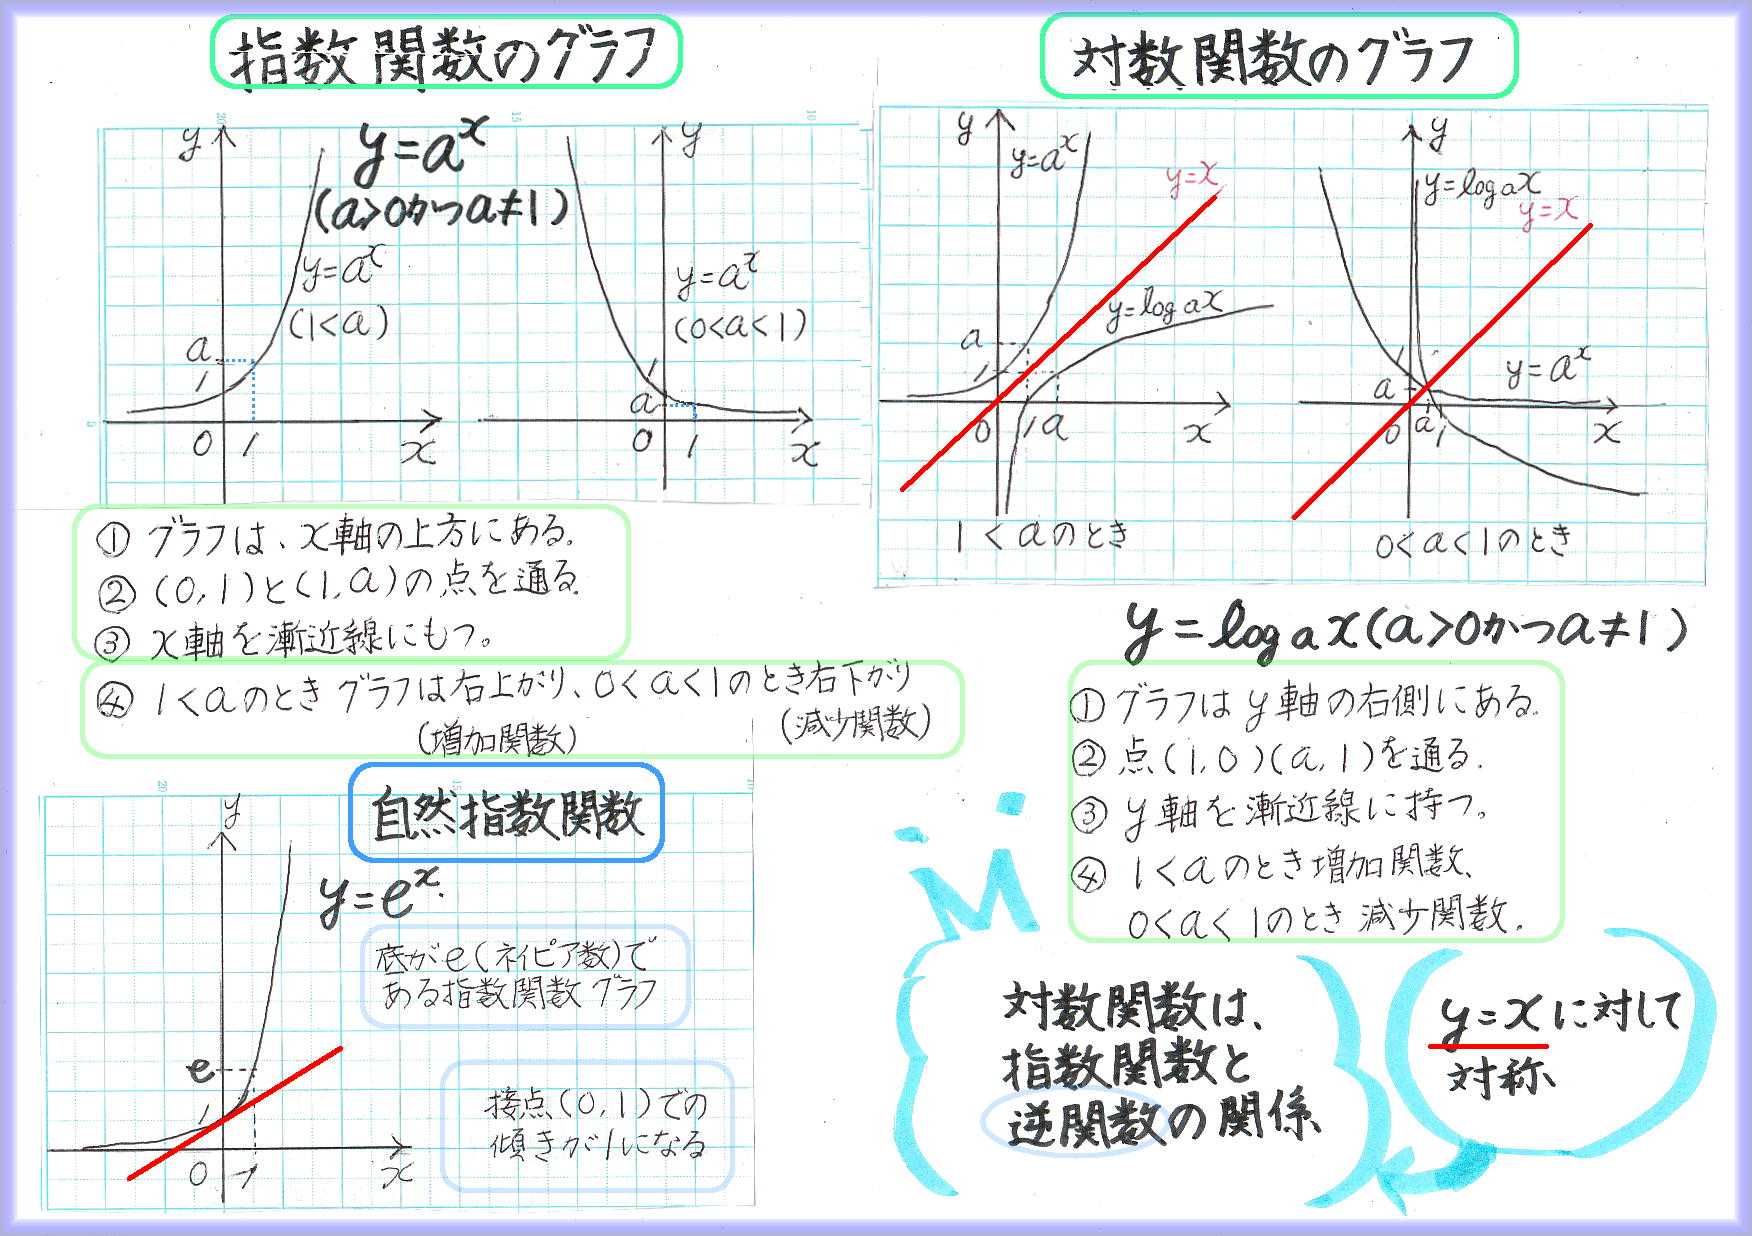 指数関数のグラフ
y=aˣ
(a>0かつa≠1)
y
y=aˣ
(1<a)
a
1
0
1
x
y
y=aˣ
(0<a<1)
1
a
0
1
x
① グラフは、x軸の上方にある.
② (0,1)と(1,a)の点を通る.
③ x軸を漸近線にもつ。
④ 1<aのときグラフは右上がり、0<a<1のとき右下がり
(増加関数)
(減少関数)
自然指数関数
y=eˣ.
底がe(ネイピア数)で
ある指数関数グラフ
接点(0,1)での
傾きが1になる
y
e
1
0
1
x
対数関数のグラフ
y
y=aˣ
y=x
y=logax
a
1
0
1
a
x
1<aのとき
y
y=logax
y=x
1
a
y=aˣ
0
a
1
x
0<a<1のとき
y=logax(a>0かつa≠1)
① グラフはy軸の右側にある.
② 点(1,0)(a,1)を通る.
③ y軸を漸近線に持つ。
④ 1<aのとき増加関数、
0<a<1のとき減少関数.
対数関数は、
指数関数と
逆関数の関係、
y=xに対して
対称、